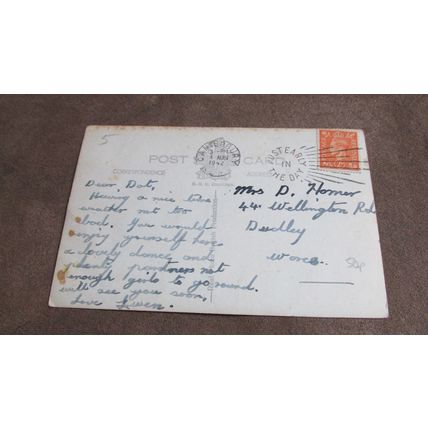 5
POST CARD
CORRESPONDENCE
ADDRESS
CANTERBURY
1942
POST EARLY
IN
THE DAY
Dear Dot,
Having a nice time
weather not too
bad. You would
enjoy yourself here
a lovely dance and
plenty not
enough girls to go round.
will see you soon.
Love Gwen.
Mrs D. Homer
44. Wellington Rd
Dudley
Worcs.
50p